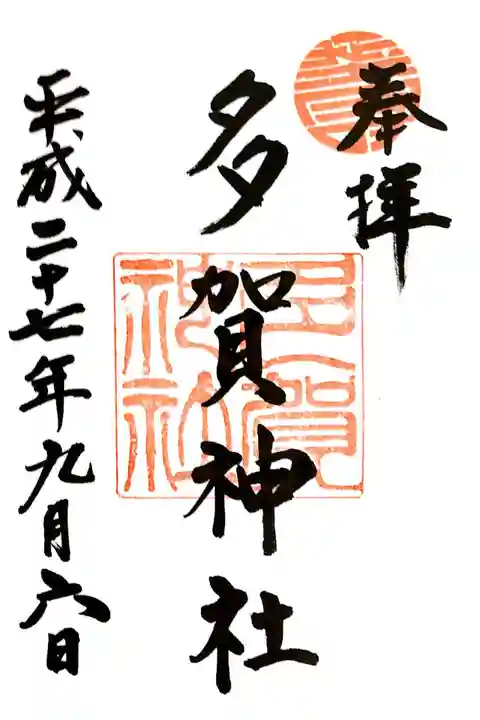 奉拝
多賀神社
平成二十七年九月六日
多賀神社